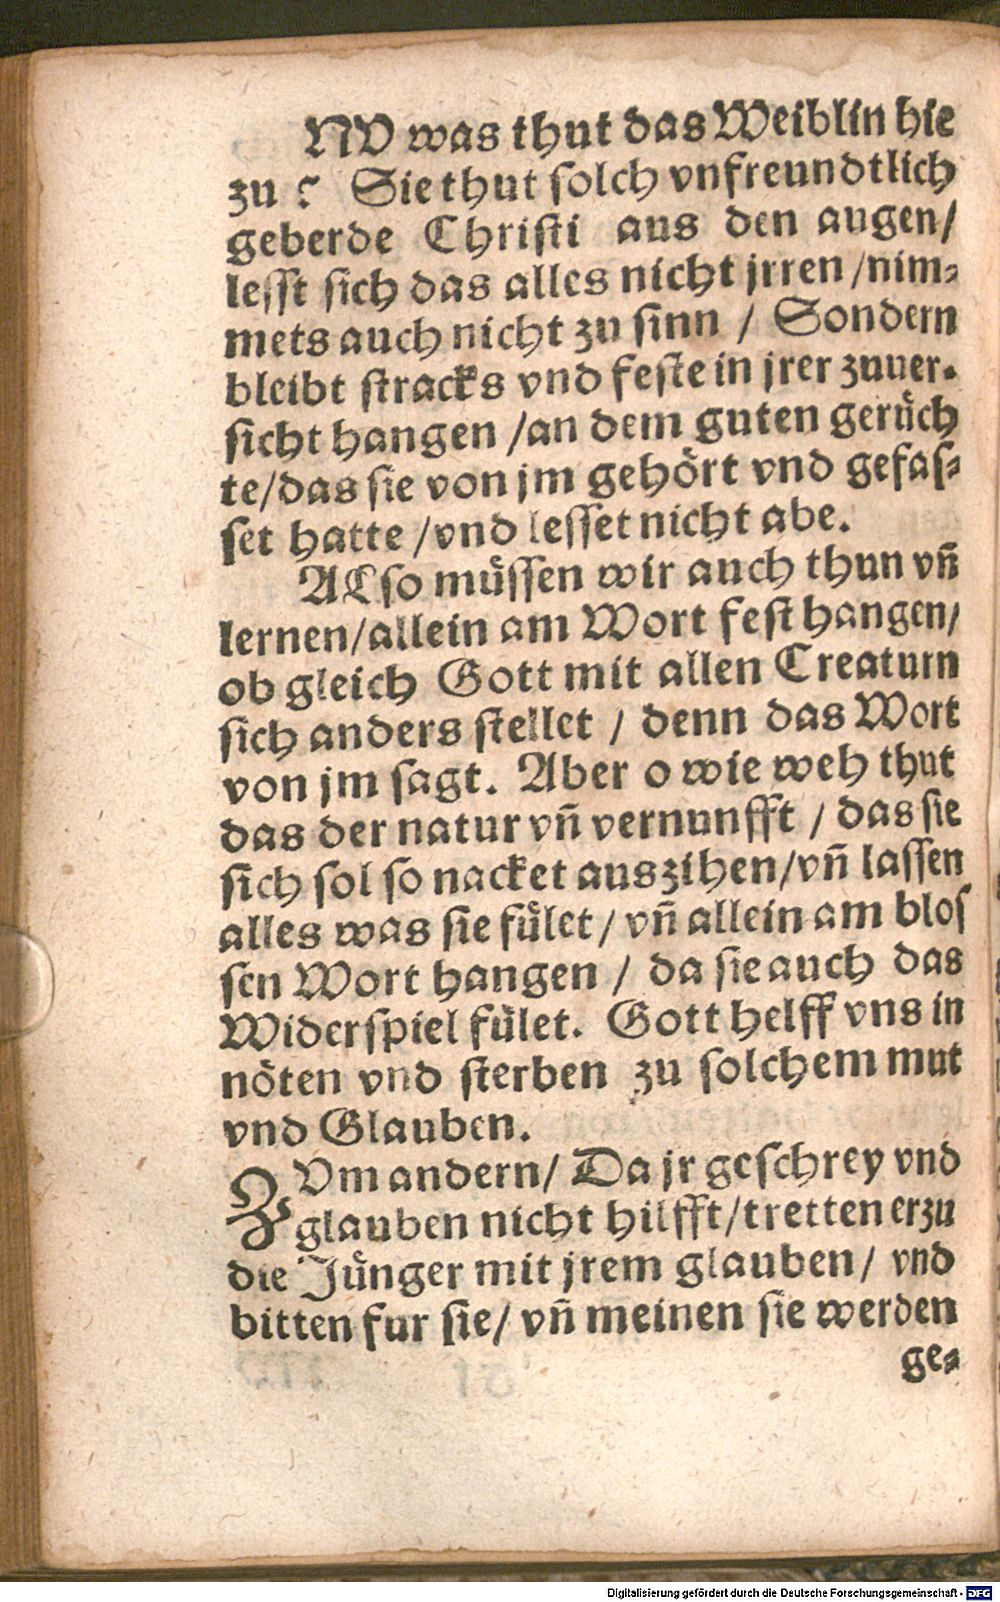 NV was thut das Weiblin hie
zu? Sie thut solch vnfreundtlich
geberde Christi aus den augen/
lesst sich das alles nicht jrren/nim⸗
mets auch nicht zu sinn / Sondern
bleibt stracks vnd feste in jrer zuuer⸗
sicht hangen /an dem guten gerüch
te/das sie von jm gehört vnd gefas⸗
set hatte /vnd lesset nicht abe.
ALso müssen wir auch thun vñ
lernen/allein am Wort fest hangen/
ob gleich Gott mit allen Creaturn
sich anders stellet / denn das Wort
von jm sagt. Aber o wie weh thut
das der natur vñ vernunfft / das sie
sich sol so nacket auszihen/vñ lassen
alles was sie fület/ vñ allein am blos
sen Wort hangen / da sie auch das
Widerspiel fület. Gott helff vns in
nöten vnd sterben zu solchem mut
vnd Glauben.
ZVm andern/ Da jr geschrey vnd
glauben nicht hilfft/tretten erzu
die Jünger mit jrem glauben/ vnd
bitten fur sie/ vñ meinen sie werden
ge⸗
Digitalisierung gefördert durch die Deutsche Forschungsgemeinschaft - DFG